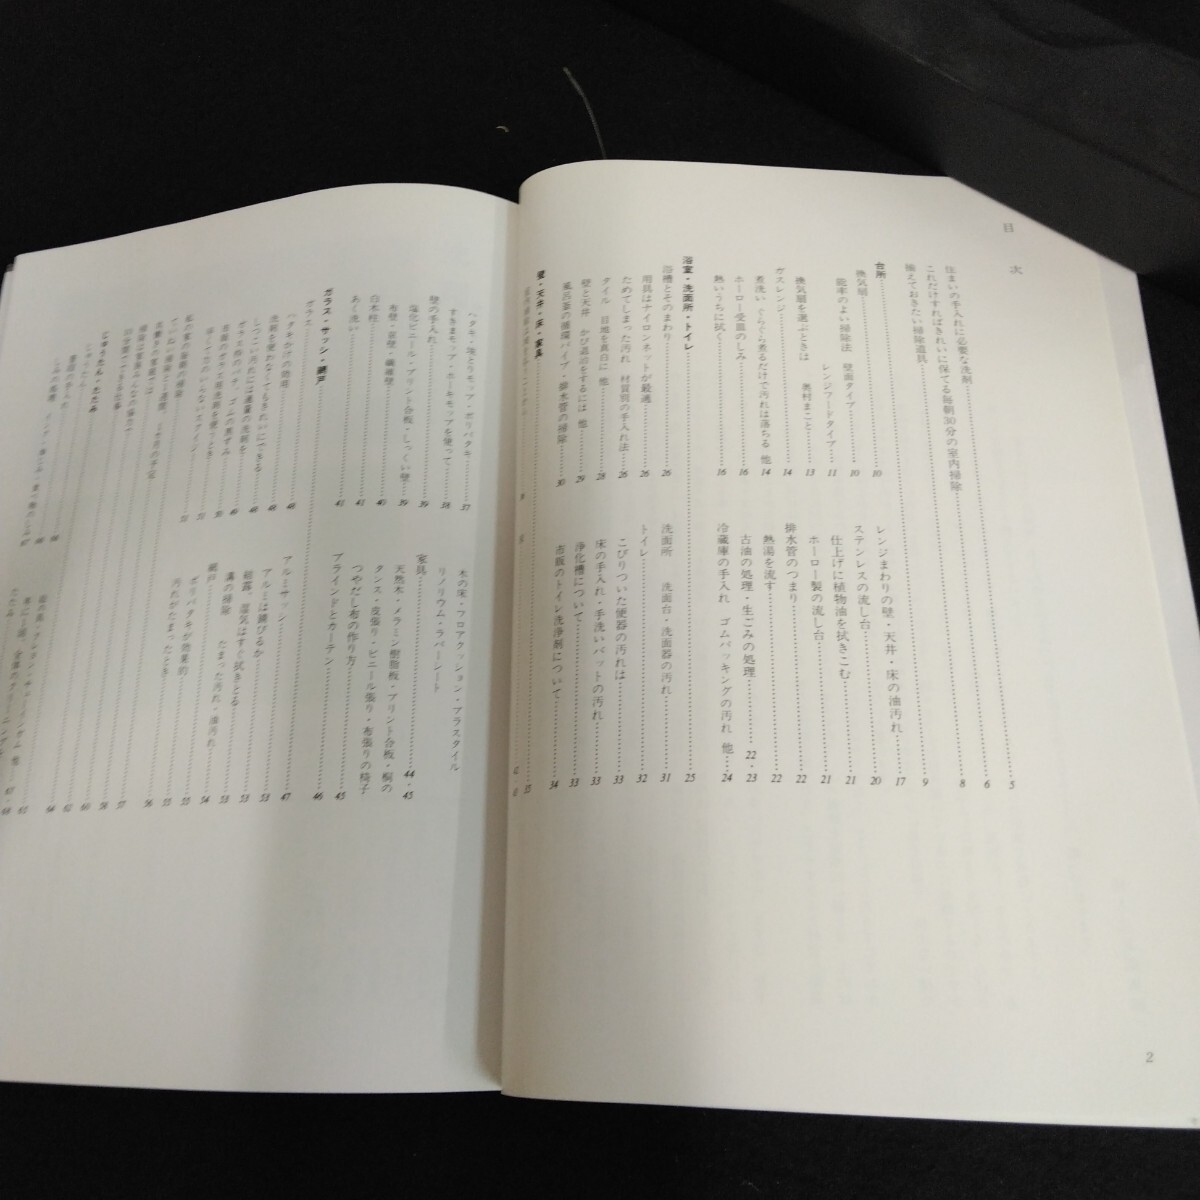 目次
住まいの手入れに必要な洗剤……5
これだけすればきれいに保てる毎朝30分の室内掃除……6
揃えておきたい掃除道具……8
台所……9
換気扇 壁面タイプ……10
レンジフードタイプ……11
能率のよい掃除法
換気扇を選ぶときは 奥村まこと……13
ガスレンジ……14
煮洗い ぐらぐら煮るだけで汚れは落ちる 他……14
ホーロー受皿のしみ……16
熱いうちに拭く……16
レンジまわりの壁・天井・床の油汚れ……17
ステンレスの流し台……20
仕上げに植物油を拭きこむ……21
ホーロー製の流し台……21
排水管のつまり……22
熱湯を流す……22
古油の処理・生ごみの処理……22・23
冷蔵庫の手入れ ゴムパッキングの汚れ 他……24
浴室・洗面所・トイレ……25
浴槽とそのまわり……26
用具はナイロンネットが最適……26
ためてしまった汚れ 材質別の手入れ法……26
タイル 目地を真白に 他……28
壁と天井 かび退治をするには 他……29
風呂釜の循環パイプ・排水管の掃除……30
洗面所 洗面台・洗面器の汚れ……31
トイレ……32
こびりついた便器の汚れは……33
床の手入れ・手洗いバットの汚れ……33
浄化槽について……33
市販のトイレ洗浄剤について……34
壁・天井・床・家具……35
ハタキ・塊とりモップ・ポリバタキ……37
すきまモップ・ホーキモップを使って……38
壁の手入れ……39
塩化ビニール・プリント合板・しっくい壁……39
布壁・京壁・繊維壁……40
白木柱……41
あく洗い……41
木の床・フロアクッション・プラスタイル
リノリウム・ラバーシート
家具……44・45
天然木・メラミン樹脂板・プリント合板・桐の
タンス・皮張り・ビニール張り・布張りの椅子
つやだし布の作り方……45
ブラインドとカーテン……46
ガラス・サッシ・網戸……47
ガラス
ハタキかけの効用……48
洗剤を使わなくてもきれいにできる……48
しつこい汚れには適量の洗剤を……48
ガラス拭のパテ、ゴムの黒ずみ……49
アルミサッシ……53
アルミは錆びるか……53
結露、湿気はすぐ拭きとる……53
溝の掃除 たまった汚れ・油汚れ……54
網戸……55
ポリバタキが効果的……55
汚れがたまったとき……55
じゅうたん・たたみ
じゅうたん
2